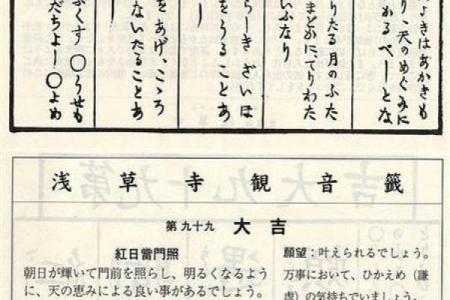 り・天のめぐみに
かるべーとな
りたる月のふた
いふなり
らーき さいほ
をうることあ
をあげ、こゝろ
ないたることあ
だちよー〇よめ
浅草寺観音籤
第九十九 大吉
紅日當門照
朝日が輝いて門前を照らし、明るくなるよう
に、天の恵みによる良い事があるでしょう。
願望：叶えられるでしょう。
万事において、ひかえめ（謙
虚）の気持ちでいましょう。